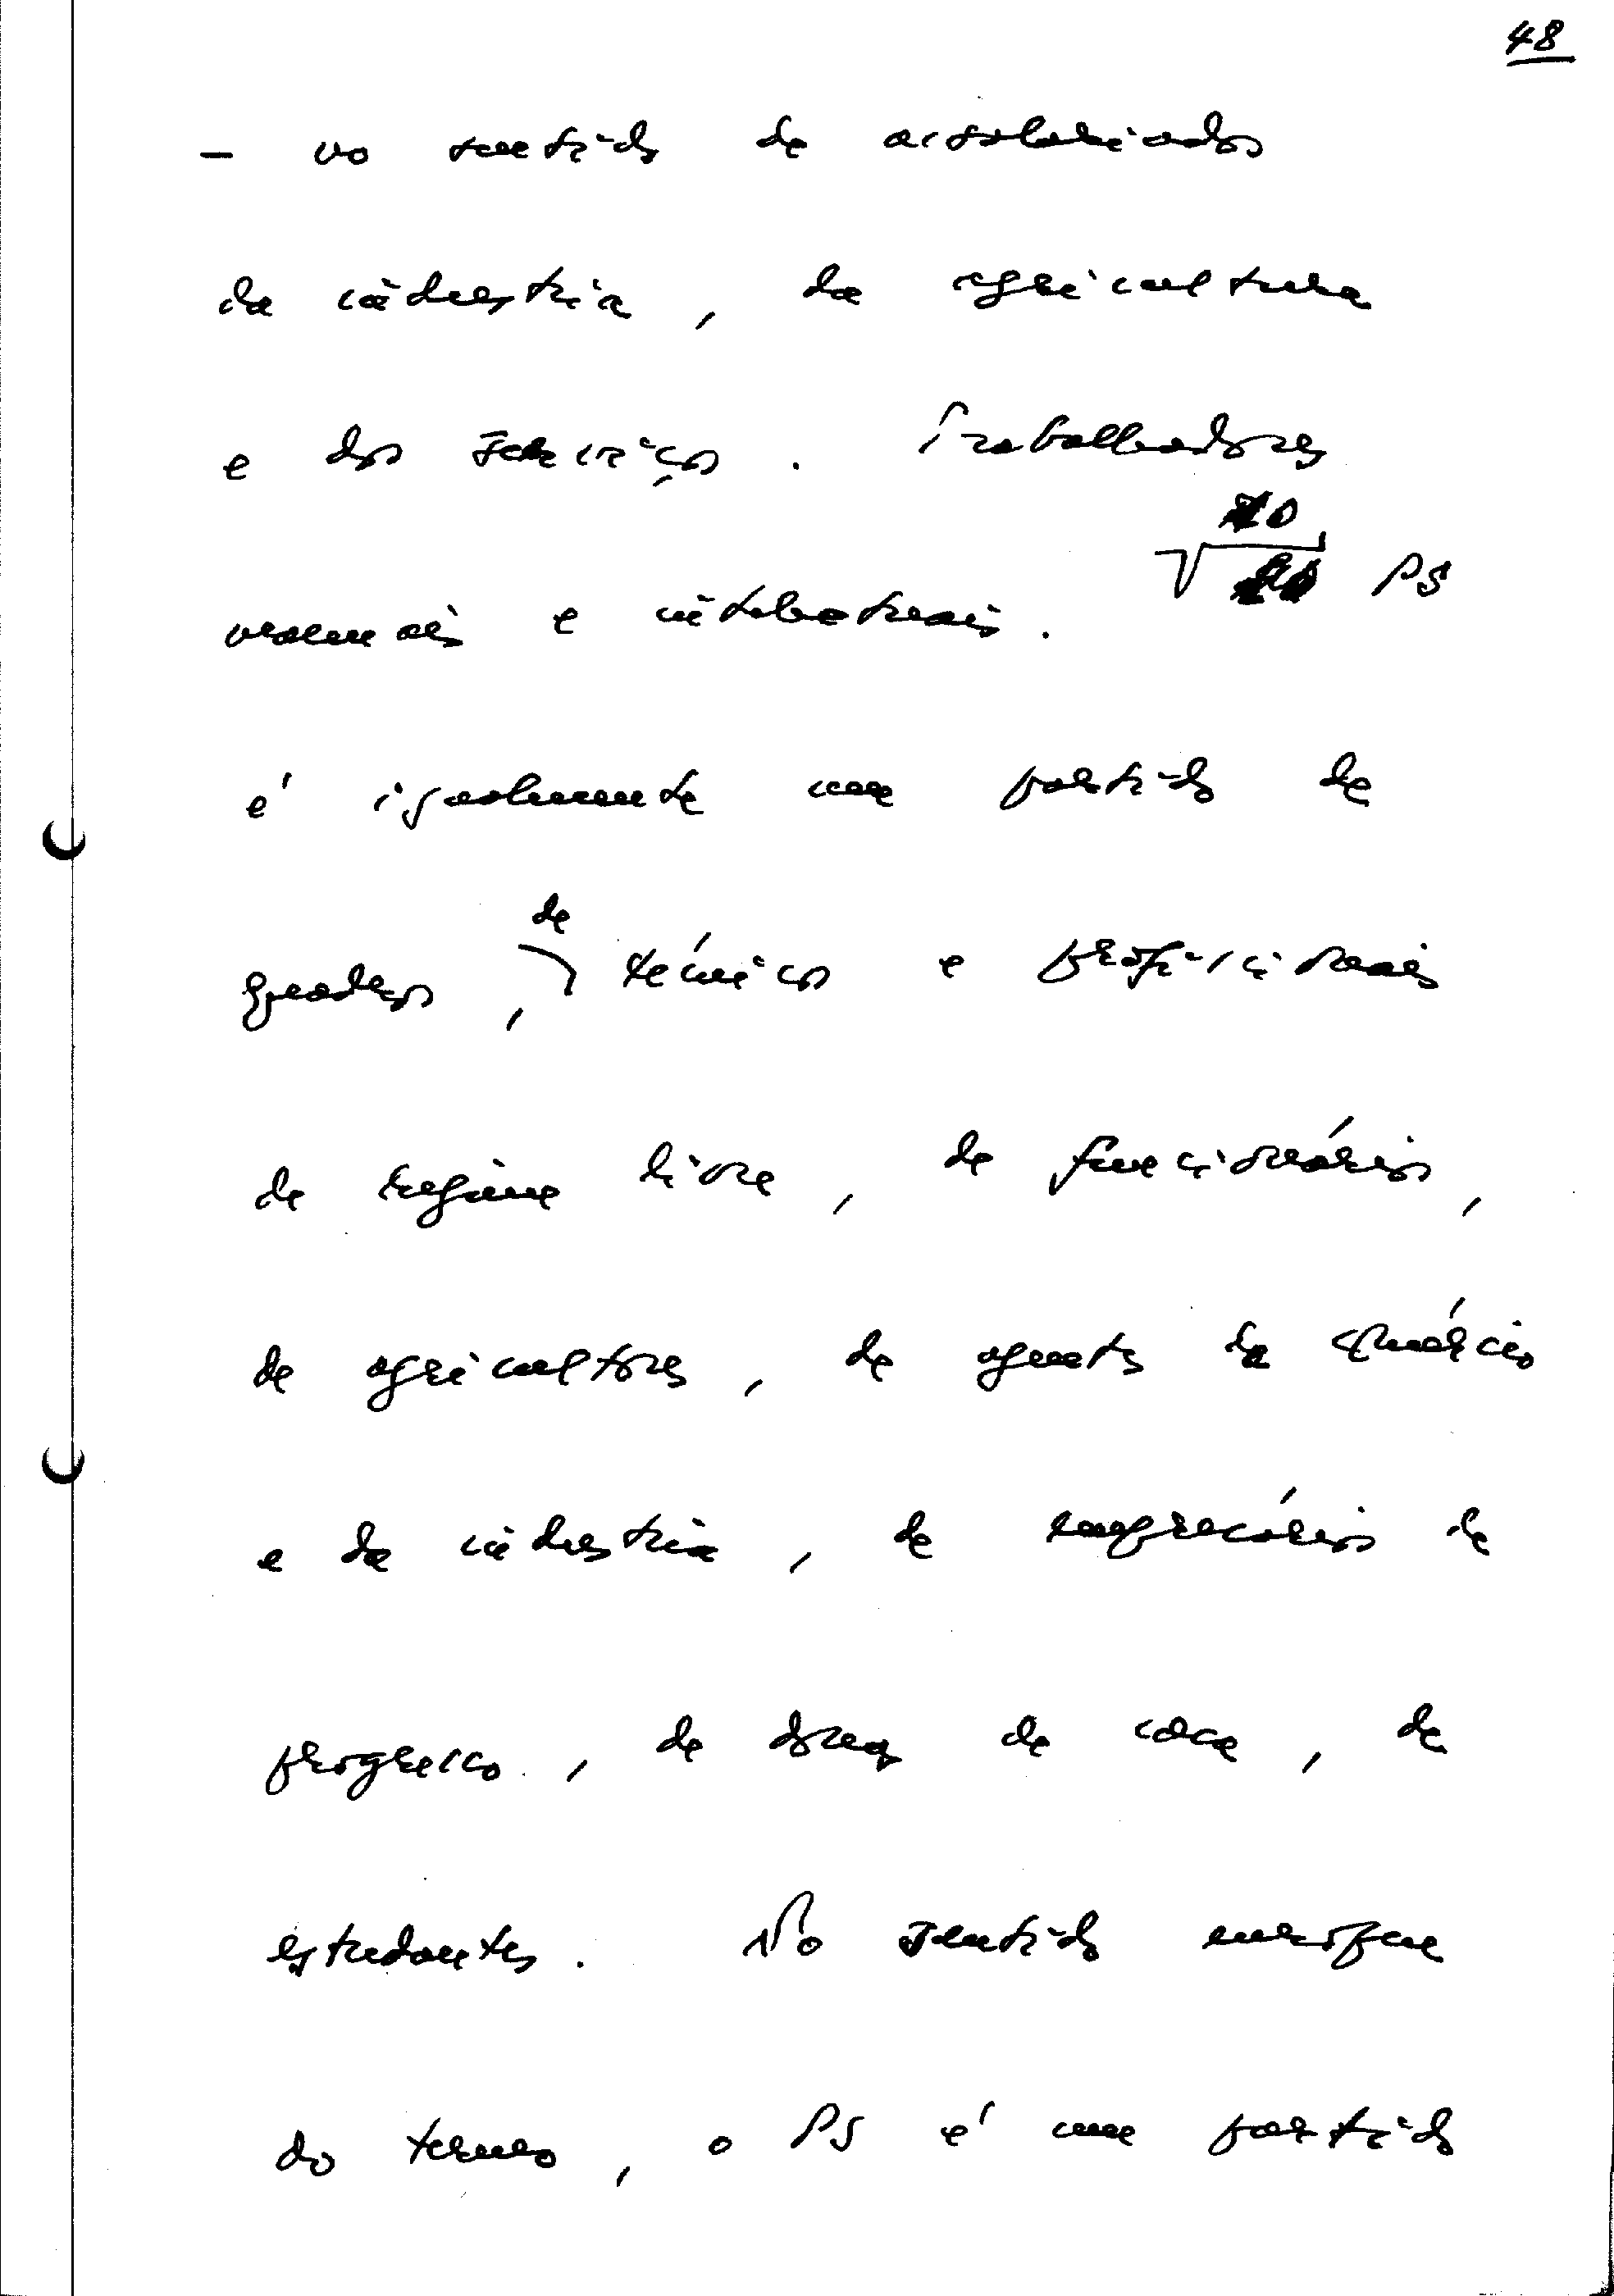 48
- no sentido de assalariados
da indústria, da agricultura
e dos serviços. Trabalhadores
manuais e intelectuais. O PS
é igualmente um partido de
quadros, de técnicos e profissionais
de regime livre, de funcionários,
de agricultores, de agentes do comércio
e da indústria, de empresários de
progresso, de donas de casa, de
estudantes. No sentido europeu
do termo, o PS é um partido